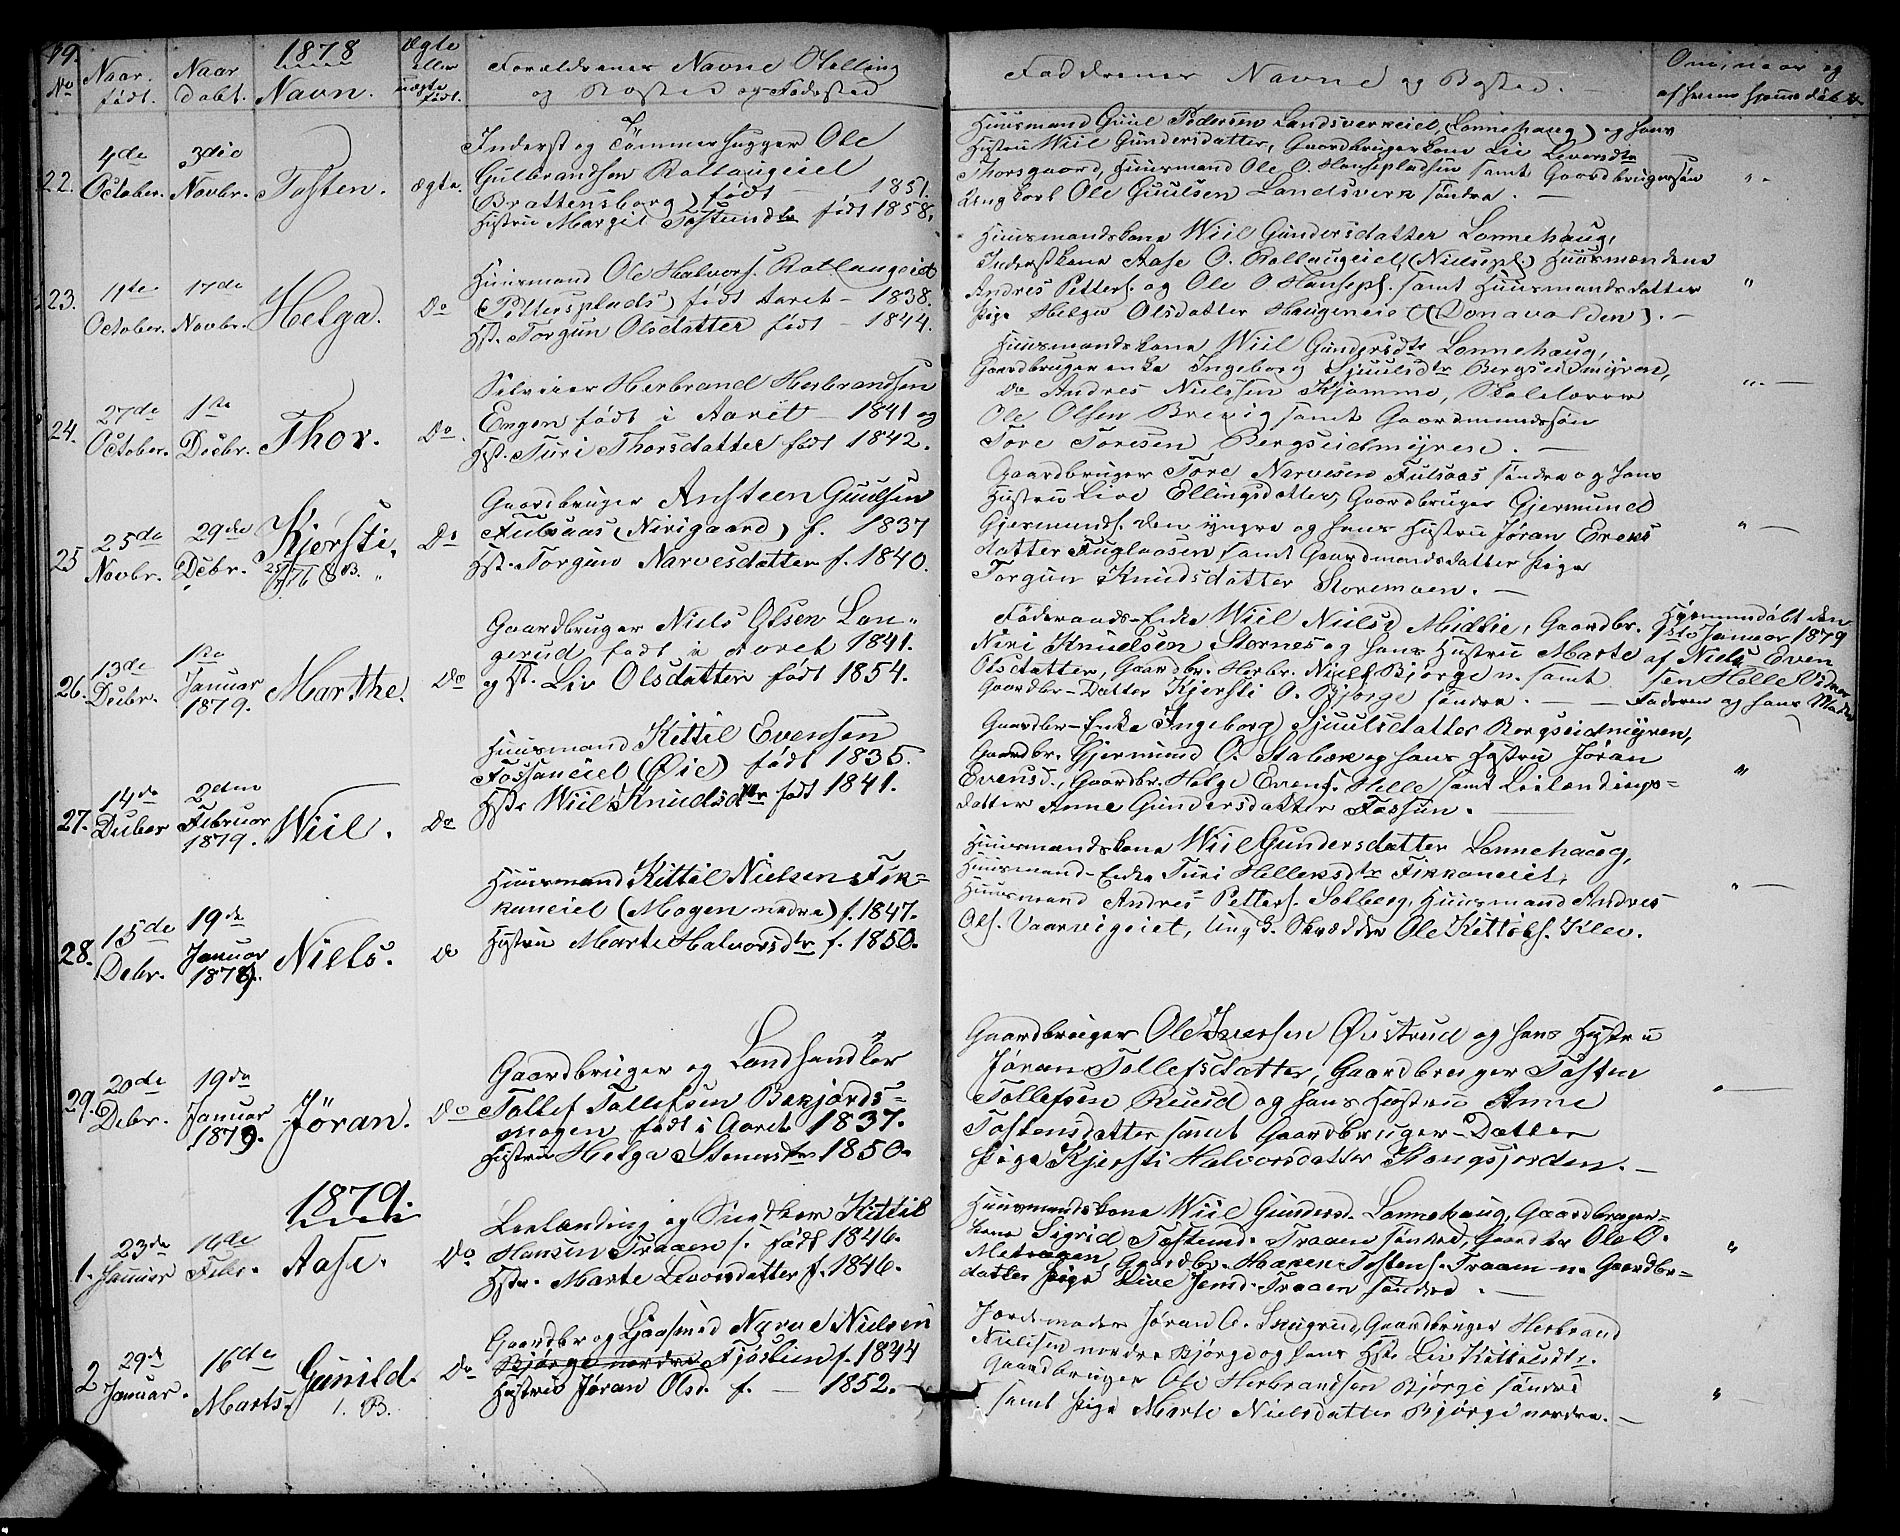 49.
No
Naar født.
Naar døbt.
1878
Navn.
Ægte eller uægte født.
Forældrenes Navne Stilling
og Bosted og Fødested
Faddernes Navne og Bosted. —
Om, naar og
af hvem hjemmedøbt
22.
4de
October.
3die
Novbr.
Tosten.
ægte.
Inderst og Tømmerhugger Ole
Gulbrandsen Rallaugeiet
(Brattensborg) født 1851.
Hustru Margit Tostensdtr født 1858.
Huusmand Guul Pedersen Landsverkeiet, (Lonnehaug) og hans
Hustru Wiil Gundersdatter, Gaardbrugerkone Liv Leversdtr
Thorsgaard, Huusmand Ole O. Hansepladsen samt Gaardbrugersøn
Ungkarl Ole Guulsen Landsverk søndre. —
23.
11te
October.
17de
Novbr.
Helga.
Do
Huusmand Ole Halvors. Rallaugeiet
(Pettersplads) født Aaret — 1838.
Hst. Torgun Olsdatter født — 1844.
Huusmandskone Wiil Gundersdatter Lonnehaug,
Inderstkone Aase O. Rallaugeiet, (Nielspl.) Huusmændene
Andres Petters. og Ole O Hansepl. samt Huusmandsdatter
Pige Helge Olsdatter Haugeneie (Donavolden). —
24.
27de
October.
1ste
Decbr.
Thor.
Do.
Selveier Herbrand Herbrandsen
Engen født i Aaret 1841 og
Hst. Turi Thorsdatter født 1842.
Huusmandskone Wiil Gundersdtr Lonnehaug,
Gaardbrugerenke Ingeborg Sjuulsdtr Bergseidmyren,
Do Andres Nielssen Kjømme, Skolelærer
Ole Olsen Brevig samt Gaardmandssøn
Tore Toresen Bergseidmyren. —
25
25de
Novbr.
29de
Decbr.
Kjersti.
Do
Gaardbruger Ansteen Guulsen
Fulsaas (Nirigaard) f. 1837
Hst. Torgun Narvesdatter f. 1840.
Gaardbruger Tore Narvesen Fulsaas søndre og hans
Hustru Live Ellingsdatter, Gaardbruger Gjermund
Gjermunds. den yngre og hans Hustru Jøran Evens
datter Fuglaasen samt Gaardmandsdatter Pige
Torgun Knudsdatter Storemoen. —
26.
13de
Decbr.
1ste
Januar
1879.
Marthe.
Do
Gaardbruger Niels Olsen Lan-
gerud født i Aaret 1841.
og Hst. Liv Olsdatter født 1854.
Føderaads-Enke Wiil Nielsd Midtlie, Gaardbr.
Niri Knudsen Stærnes og hans Hustru Marte
Olsdatter, Gaardbr. Herbr. Niels. Bjørge n. samt
Gaardbr-Datter Kjersti O. Bjørge søndre. —
Hjemmedøbt den
1ste Januar 1879
af Niels Even
sen Helle Vidner
Faderen og hans Moder
27.
14de
Decber
2den
Februar
1879.
Wiil.
Do
Huusmand Kittil Evensen
Fossaneiet (Øie) født 1835.
Hstr Wiil Knudsdtr født 1841.
Gaardbr-Enke Ingeborg Sjuulsdatter Bergseidmyren,
Gaardbr. Gjermund O. Stabæk og hans Hustru Jøran
Evensd., Gaardbr. Helge Evens. Helle samt Leilendings-
datter Anne Gundersdatter Fossen. —
28.
15de
Debr.
19de
Januar
1879.
Niels.
do
Huusmand Kittil Nielsen Fik-
kaneiet (Mogen nedre) f. 1847.
Hustru Marte Halvorsdtr f. 1850.
Huusmandskone Wiil Gundersdatter Lonnehaug,
Huusmand-Enke Turi Hellersdtr Fikkaneiet,
Huusmand Andres Petters. Solberg, Huusmand Andres
Ols. Vaarvigeiet, Ungk. Skrædder Ole Kittils. Klev.
29.
20de
Debr.
19de
Januar
1879.
Jøran.
Do
Gaardbruger og Landhandler
Tollef Tollefsen Bekjords-
mogen født i Aaret 1837.
Hustru Helga Stenersdtr 1850.
Gaardbruger Ole Iversen Øustrud og hans Hustru
Jøran Tollefsdatter, Gaardbruger Tosten
Tollefsen Ruud og hans Hustru Anne
Tostensdatter samt Gaardbruger-Datter
Pige Kjersti Halvorsdatter Kongsjorden. —
1879.
1.
23de
Januar
16de
Febr.
Aase.
Do
Leilending og Snedker Kittil
Hansen Traaen s. født 1846.
Hstr. Marte Levorsdatter f. 1846.
Huusmandskone Wiil Gundersd. Lonnehaug, Gaardbruger-
kone Sigrid Tostensd. Traaen søndre, Gaardbr Ole O.
Metaagen, Gaardbr. Haagen Tostens. Traaen n. Gaardbr-
datter Pige Live Jensd. Traaen søndre. —
2
29de
Januar.
16de
Marts.
Gunild.
1. B.
Do
Gaardbr og Ljaasmed Narve Nielsen
Bjørge nordre Fjøslien f. 1844
Hustru Jøran Olsd. f. — 1852.
Jordemoder Jøran O. Snegrud, Gaardbruger Herbrand
Nielssen nordre Bjørge og hans Hst. Liv Kittilsdtr.
Gaardbruger Ole Herbrandsen Bjørge søndre
samt Pige Marte Nielsdatter Bjørge nordre. —